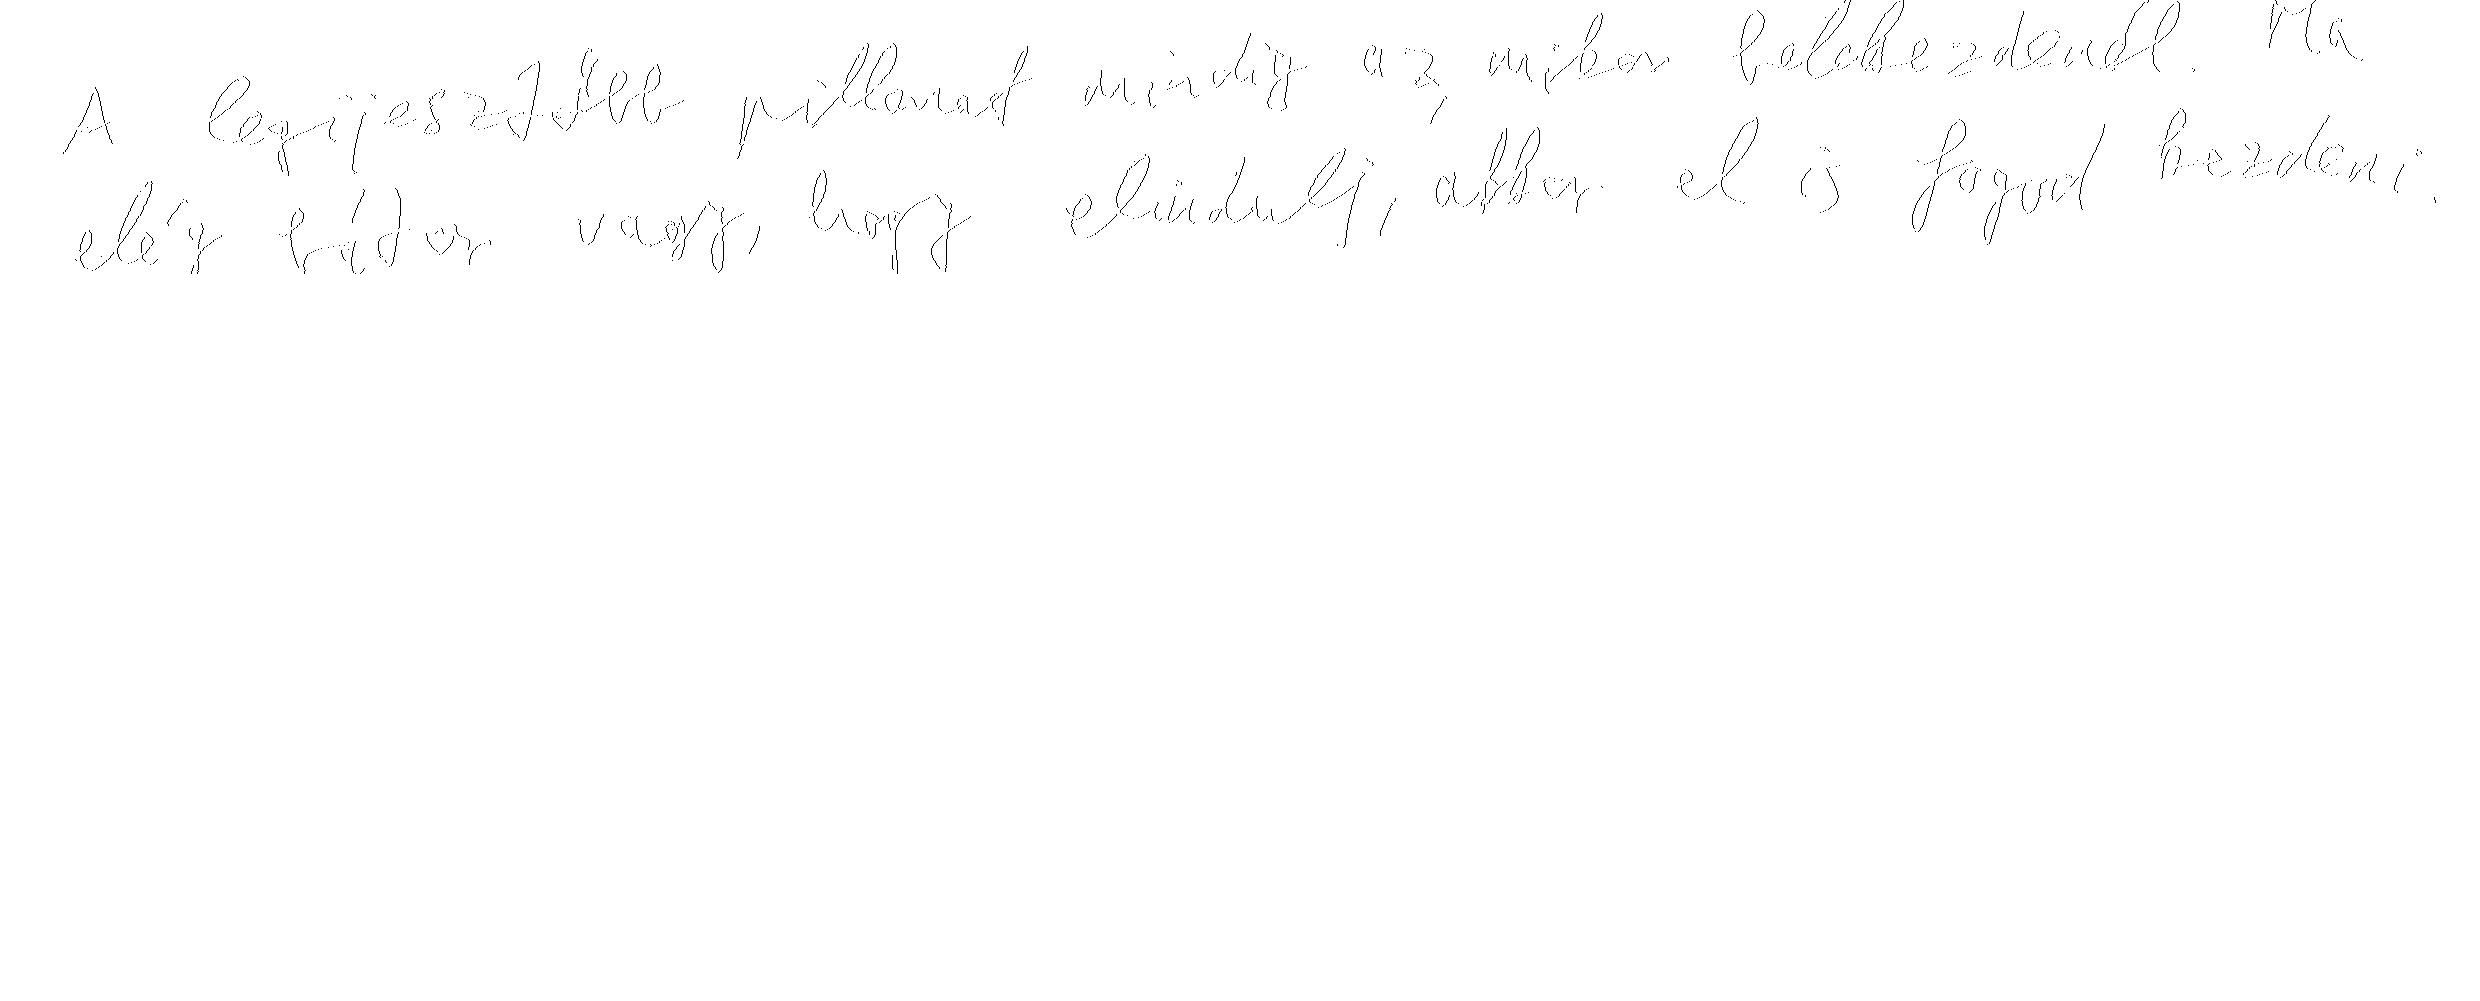 A legijesztőbb pillanat mindig az, mikor belekezdenél. Ha
elég bátor vagy, hogy elindulj, akkor el is fogod kezdeni.